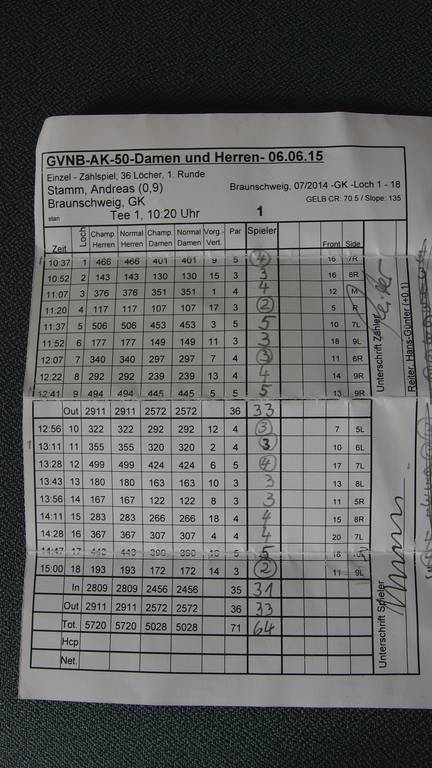 GVNB-AK-50-Damen und Herren- 06.06.15
Einzel - Zählspiel; 36 Löcher, 1. Runde
Stamm, Andreas (0,9) Braunschweig, 07/2014 -GK -Loch 1 - 18
Braunschweig, GK GELB CR: 70.5 / Slope: 135
stan Tee 1, 10:20 Uhr 1
Zeit Loch Champ. Herren Normal Herren Champ. Damen Normal Damen Vorg.- Vert. Par Spieler Front Side
10:37 1 466 466 401 401 9 5 4 16 7R
10:52 2 143 143 130 130 15 3 3 16 8R
11:07 3 376 376 351 351 1 4 4 12 M
11:20 4 117 117 107 107 17 3 2 5 R
11:37 5 506 506 453 453 3 5 5 10 7L
11:52 6 177 177 149 149 11 3 3 18 9L
12:07 7 340 340 297 297 7 4 3 11 6R
12:22 8 292 292 239 239 13 4 4 14 9R
12:41 9 494 494 445 445 5 5 5 13 9R
Out 2911 2911 2572 2572 36 33
12:56 10 322 322 292 292 12 4 3 7 5L
13:11 11 355 355 320 320 2 4 3 10 6L
13:28 12 499 499 424 424 6 5 4 17 7L
13:43 13 180 180 163 163 10 3 3 13 8L
13:56 14 167 167 122 122 8 3 3 11 5R
14:11 15 283 283 266 266 18 4 4 15 8R
14:28 16 367 367 307 307 4 4 4 20 7L
14:47 17 443 443 5 5 18
15:00 18 193 193 172 172 14 3 2 11 9L
In 2809 2809 2456 2456 35 31
Out 2911 2911 2572 2572 36 33
Tot. 5720 5720 5028 5028 71 64
Hcp
Net.
Unterschrift Zähler
Reiter, Hans-Günter (+0,1)
Unterschrift Spieler